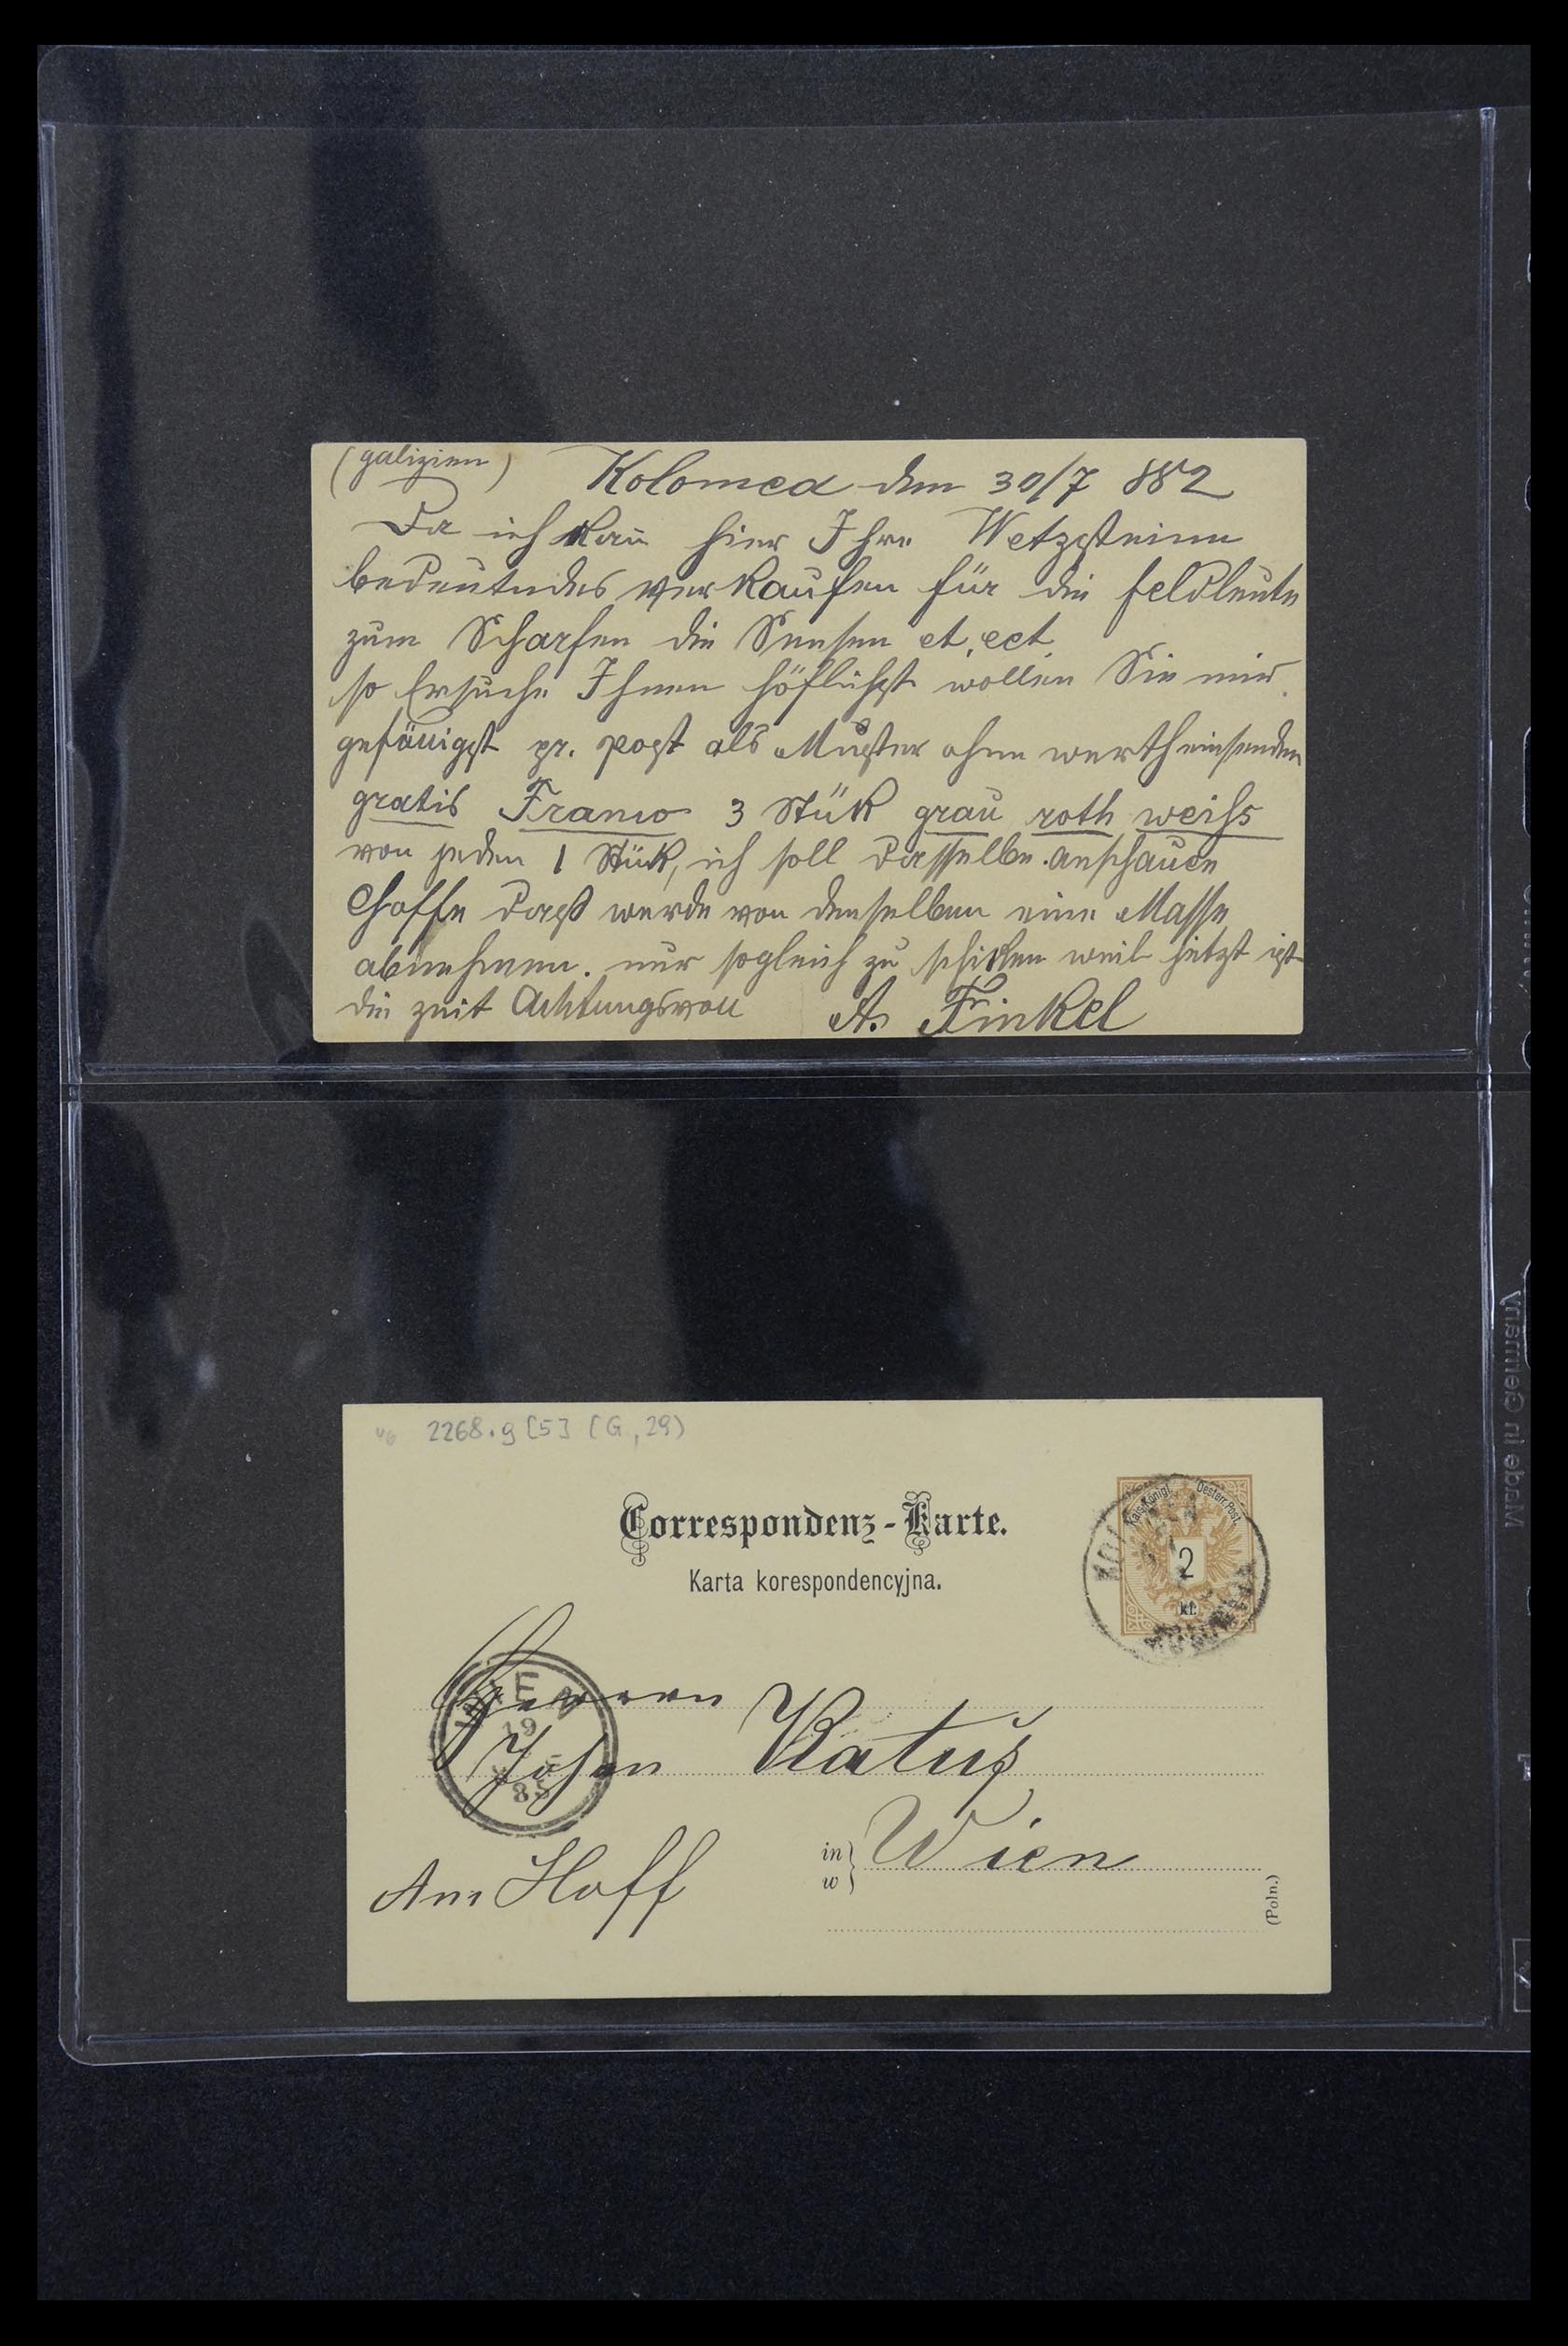 (galizien) Kolomea den 30/7 882
Da ich kan̄ hier Ihre Wetzsteine
bedeutendes verkaufen für die feldleute
zum Scharfen die Sensen et. ect.
so Ersuche Ihnen höflichst wollen Sie mir
gefälligst pr. post als Muster ohne werth einsenden
gratis Franco 3 Stük grau roth weiss
von jeden 1 Stük, ich soll dasselbe anschauen
hoffe dass werde von denselben eine Masse
abnehmen. nur sogleich zu schiken weil jetzt ist
die zeit Achtungsvoll A. Finkel
2268.g [5] (G, 29)
Correspondenz-Karte.
Karta korespondencyjna.
Kais. Königl. Oesterr. Post.
2
kr.
WIEN
19
85
Herrn
Johan
Am Hoff
in
w
Wien
(Poln.)
Made in Germany